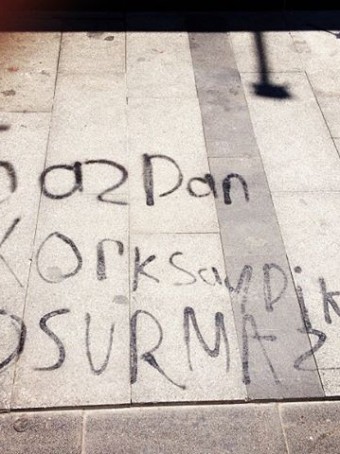 gazDan
KorksayDik
OSURMAZ